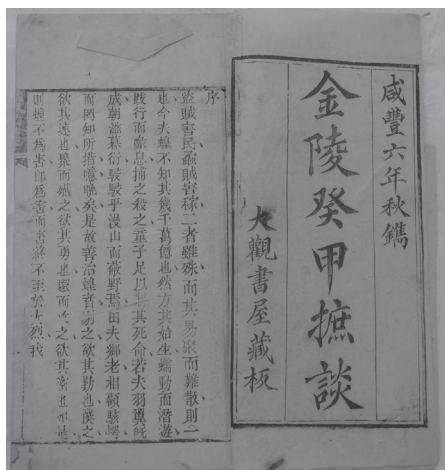 咸豐六年秋鐫
金陵癸甲摭談
大觀書屋藏板
序
盜賊害民蟊賊害稼二者雖殊而其易聚而難散則一
也今夫蝗不知其幾千萬億也然方其始生蠕動而潛遊
跂行而喙息捕之殺之童子足以制其死命若夫羽翼既
成朝滋暮衍駸駸乎漫山而蔽野焉田夫鄉老相顧駭愕
而罔知所措噫晚矣是故善治蝗者欲其勤也
欲其速也聚而殲之欲其勇也之欲其
則蝗不為害即為害而害終不至於大烈我